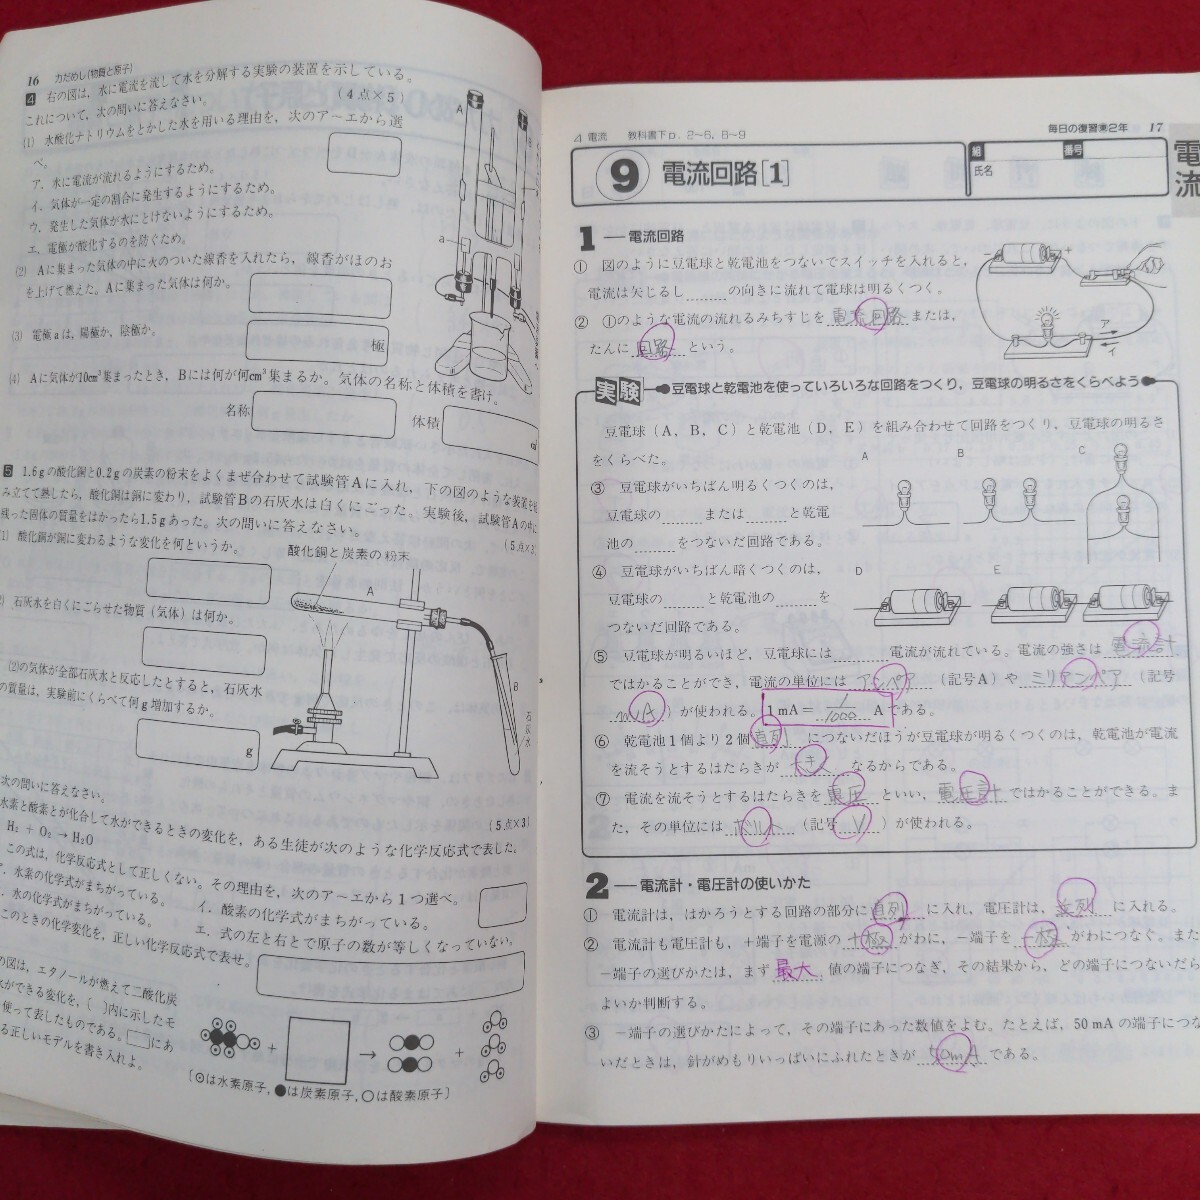 16 力だめし(物質と原子)
4 右の図は，水に電流を流して水を分解する実験の装置を示している。
これについて，次の問いに答えなさい。 (4点×5)
(1) 水酸化ナトリウムをとかした水を用いる理由を，次のア～エから選
べ。
ア．水に電流が流れるようにするため。
イ．気体が一定の割合に発生するようにするため。
ウ．発生した気体が水にとけないようにするため。
エ．電極が酸化するのを防ぐため。
(2) Aに集まった気体の中に火のついた線香を入れたら，線香がほのお
を上げて燃えた。Aに集まった気体は何か。
(3) 電極aは，陽極か，陰極か。
極
(4) Aに気体が10cm³集まったとき，Bには何が何cm³集まるか。気体の名称と体積を書け。
名称
体積
A
a
5 1.6gの酸化銅と0.2gの炭素の粉末をよくまぜ合わせて試験管Aに入れ，下の図のような装置を組
み立てて熱したら，酸化銅は銅に変わり，試験管Bの石灰水は白くにごった。実験後，試験管Aの中に
残った固体の質量をはかったら1.5gあった。次の問いに答えなさい。 (5点×3)
(1) 酸化銅が銅に変わるような変化を何というか。
酸化銅と炭素の粉末
A
B
石灰水
石灰水を白くにごらせた物質(気体)は何か。
(2)の気体が全部石灰水と反応したとすると，石灰水
の質量は，実験前にくらべて何g増加するか。
g
次の問いに答えなさい。 (5点×3)
水素と酸素とが化合して水ができるときの変化を，ある生徒が次のような化学反応式で表した。
H₂ + O₂ → H₂O
この式は，化学反応式として正しくない。その理由を，次のア～エから1つ選べ。
水素の化学式がまちがっている。 イ．酸素の化学式がまちがっている。
水の化学式がまちがっている。 エ．式の左と右とで原子の数が等しくなっていない。
このときの化学変化を，正しい化学反応式で表せ。
の図は，エタノールが燃えて二酸化炭
水ができる変化を，( )内に示したモ
使って表したものである。□にあ
る正しいモデルを書き入れよ。
+ → +
[⊙は水素原子，●は炭素原子，○は酸素原子]
4 電流 教科書下p．2～6，8～9
毎日の復習 2年 17
9 電流回路[1]
組 番号
氏名
電流
1 ── 電流回路
① 図のように豆電球と乾電池をつないでスイッチを入れると，
電流は矢じるし の向きに流れて電球は明るくつく。
② ①のような電流の流れるみちすじを 電流回路 または，
たんに 回路 という。
− +
ア
イ
実験 豆電球と乾電池を使っていろいろな回路をつくり，豆電球の明るさをくらべよう
豆電球(A，B，C)と乾電池(D，E)を組み合わせて回路をつくり，豆電球の明るさ
をくらべた。
A B C
D E
③ 豆電球がいちばん明るくつくのは，
豆電球の または と乾電
池の をつないだ回路である。
④ 豆電球がいちばん暗くつくのは，
豆電球の と乾電池の を
つないだ回路である。
⑤ 豆電球が明るいほど，豆電球には 電流が流れている。電流の強さは 電流計
ではかることができ，電流の単位には アンペア (記号A)や ミリアンペア (記号
mA )が使われる。1 mA＝ 1/1000 Aである。
⑥ 乾電池1個より2個 直列 につないだほうが豆電球が明るくつくのは，乾電池が電流
を流そうとするはたらきが 大き なるからである。
⑦ 電流を流そうとするはたらきを 電圧 といい， 電圧計 ではかることができる。ま
た，その単位には ボルト (記号 V )が使われる。
2 ── 電流計・電圧計の使いかた
① 電流計は，はかろうとする回路の部分に 直列 に入れ，電圧計は， 並列 に入れる。
② 電流計も電圧計も，+端子を電源の +極 がわに，−端子を −極 がわにつなぐ。また
−端子の選びかたは，まず 最大 値の端子につなぎ，その結果から，どの端子につないだら
よいか判断する。
③ −端子の選びかたによって，その端子にあった数値をよむ。たとえば，50 mAの端子につな
いだときは，針がめもりいっぱいにふれたときが 50mA である。